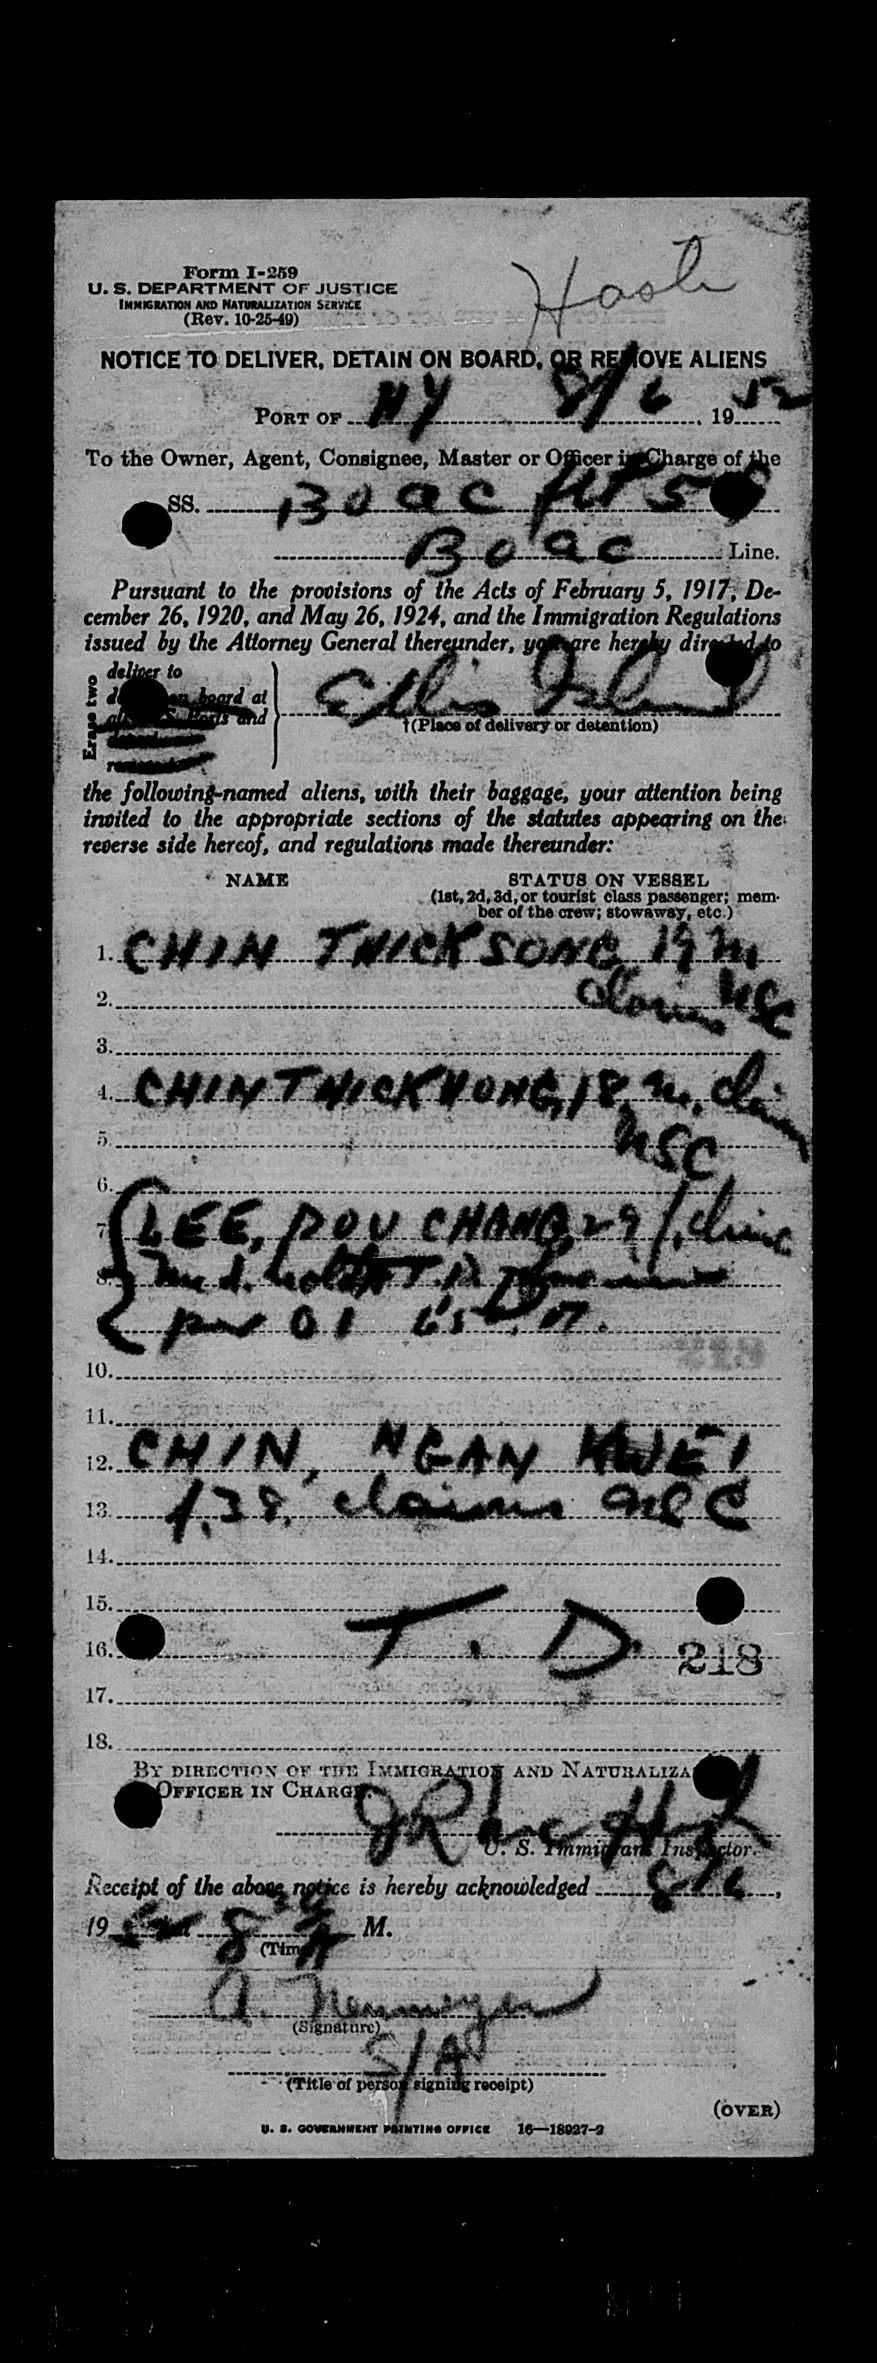 Form I-259
U. S. DEPARTMENT OF JUSTICE
IMMIGRATION AND NATURALIZATION SERVICE
(Rev. 10-25-49)
NOTICE TO DELIVER, DETAIN ON BOARD, OR REMOVE ALIENS
PORT OF NY 8/6, 1952
To the Owner, Agent, Consignee, Master or Officer in Charge of the
SS. BOAC
BOAC Line.
Pursuant to the provisions of the Acts of February 5, 1917, De-
cember 26, 1920, and May 26, 1924, and the Immigration Regulations
issued by the Attorney General thereunder, you are hereby directed to
Erase two
deliver to
board at
and
Ellis Island
†(Place of delivery or detention)
the following-named aliens, with their baggage, your attention being
invited to the appropriate sections of the statutes appearing on the
reverse side hereof, and regulations made thereunder:
NAME STATUS ON VESSEL
(1st, 2d, 3d, or tourist class passenger; mem-
ber of the crew; stowaway, etc.)
1. CHIN THICK SONG 19 m
2. claims USC
3.
4. CHIN THICK HONG, 18, m, claims
5. USC
6.
7. LEE, DOU CHANG, 29 f,
8.
10.
11.
12. CHIN, NGAN KWEI
13. f, 38, claims USC
14.
15.
16. T. D. 218
17.
18.
BY DIRECTION OF THE IMMIGRATION AND NATURALIZA
OFFICER IN CHARGE.
U. S. Immigrant Inspector.
Receipt of the above notice is hereby acknowledged 8/6,
19 8 M.
(Time)
A. Neumeyer
(Signature)
S/A
(Title of person signing receipt)
(OVER)
U. S. GOVERNMENT PRINTING OFFICE 16—18027-2